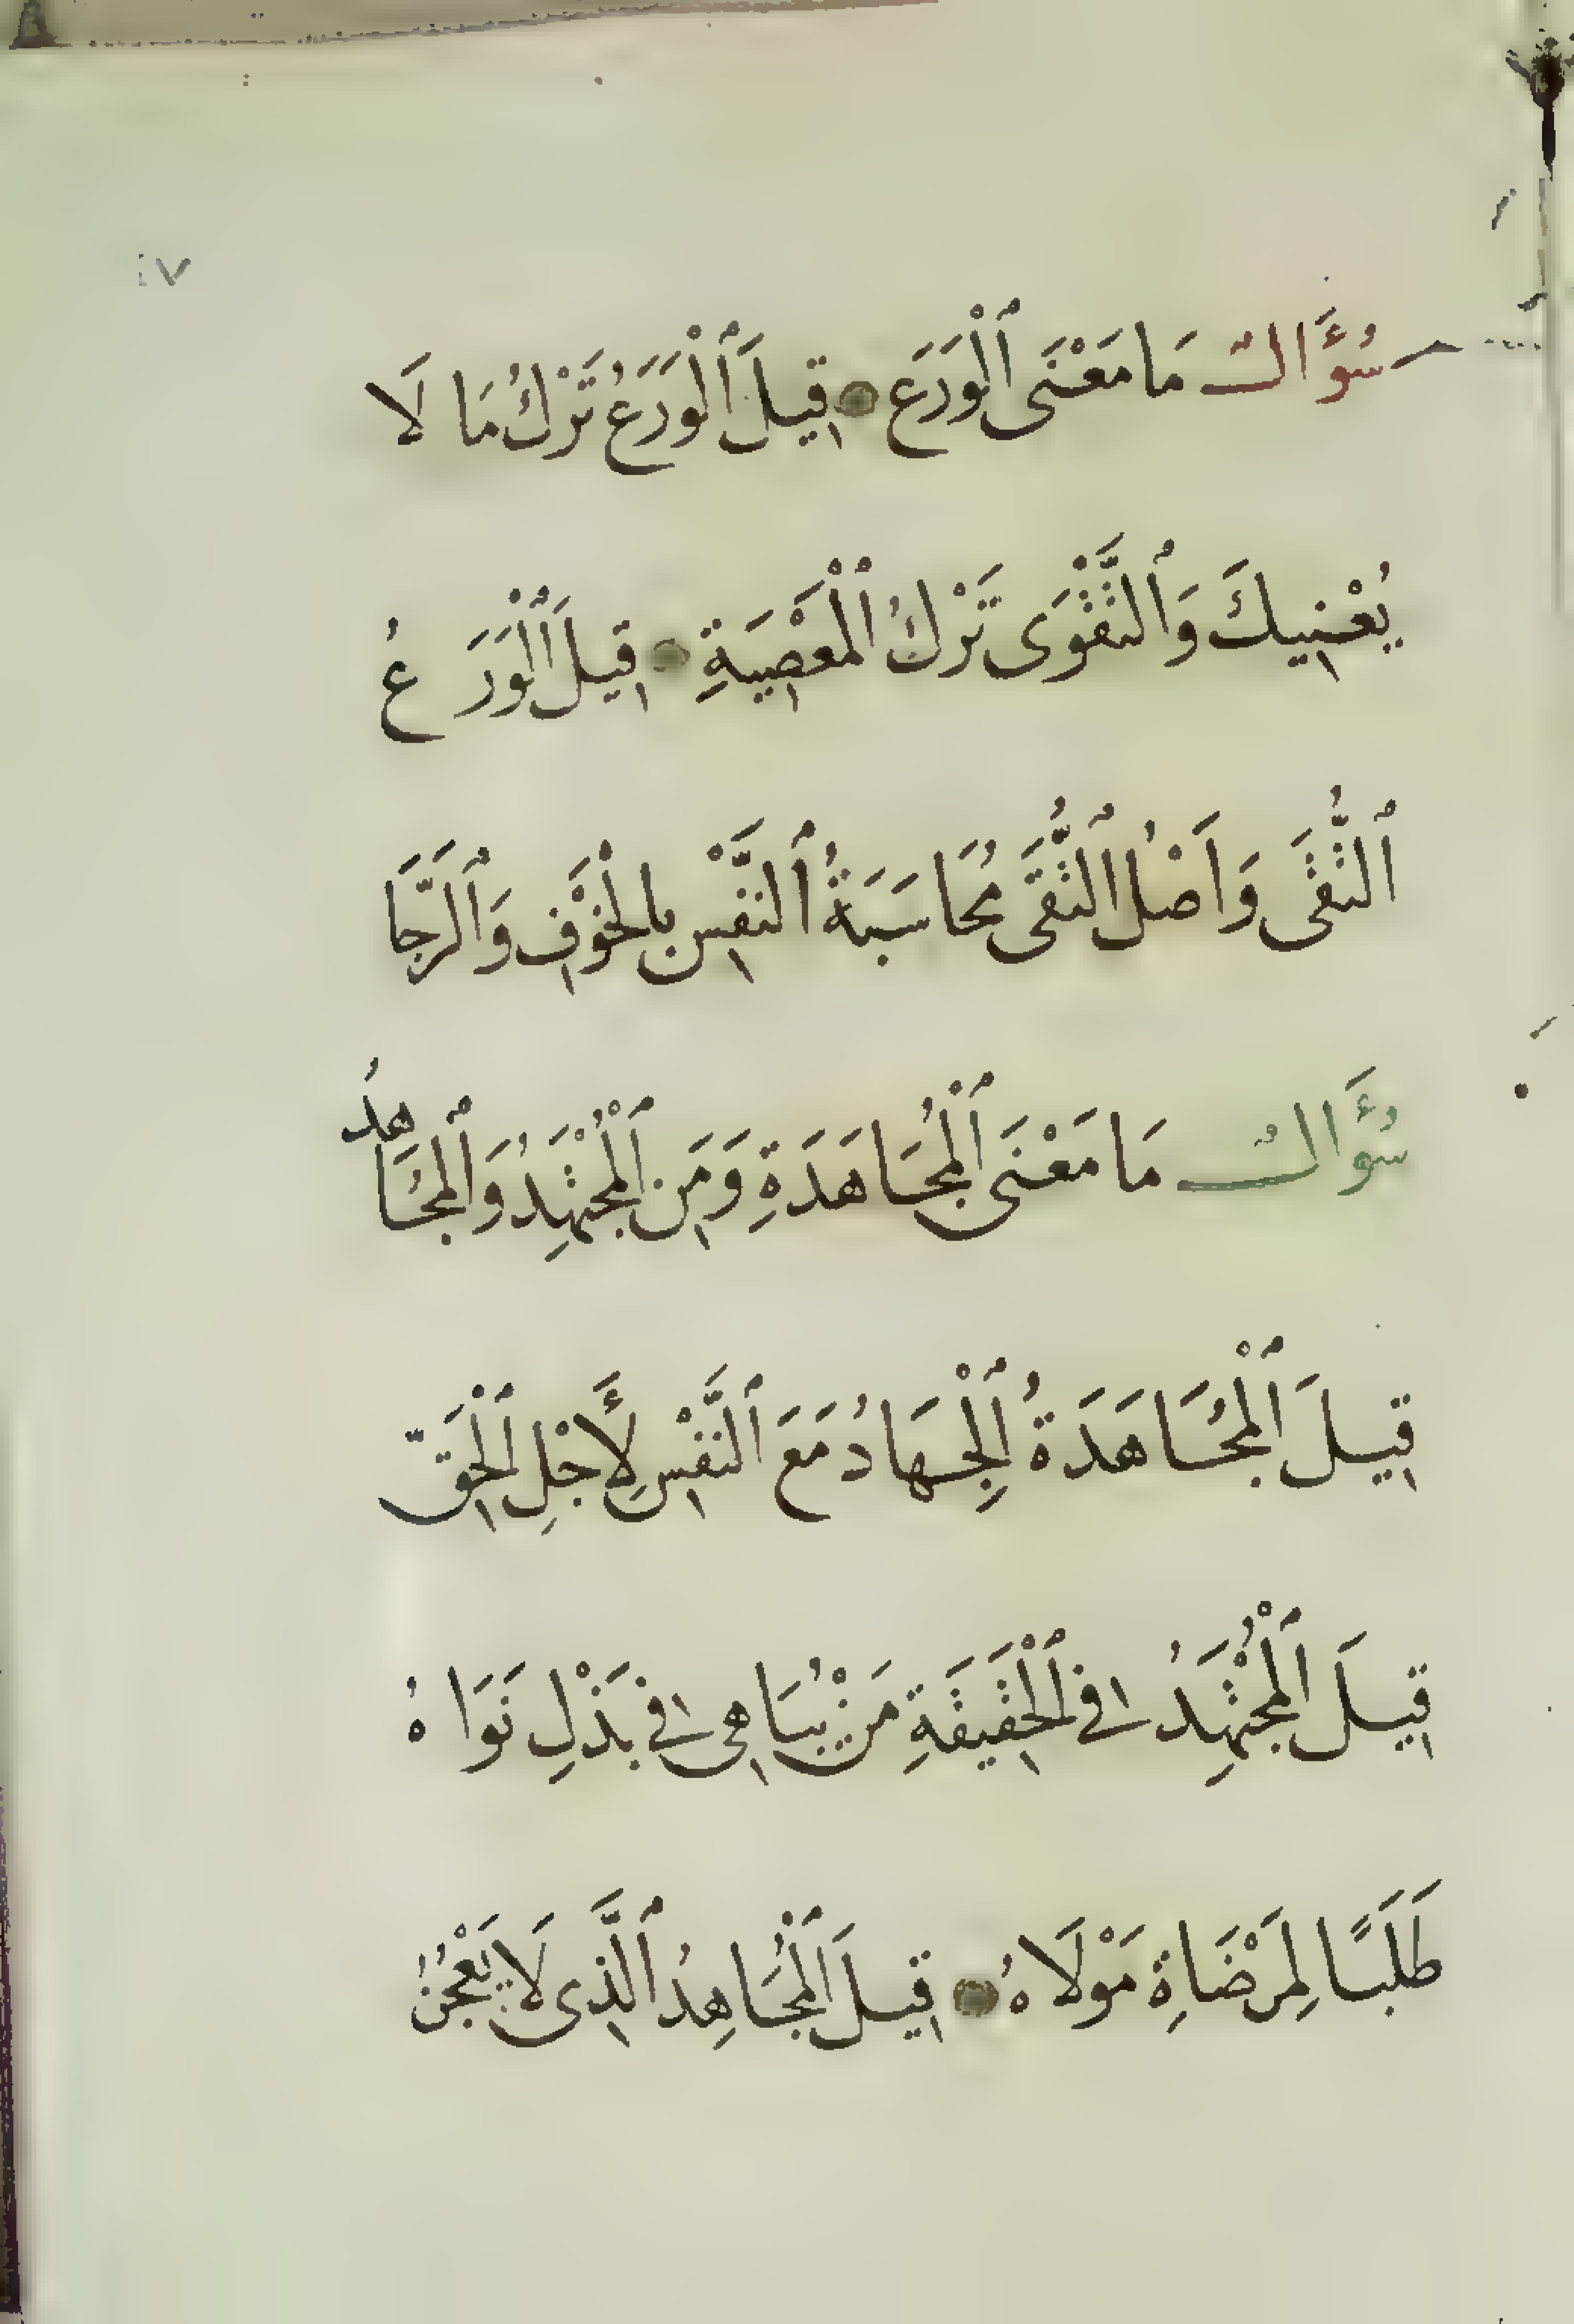 ٤٧
سُؤَالٌ مَا مَعْنَى ٱلْوَرَع قِيلَ ٱلْوَرَعُ تَرْكُ مَا لَا
يُعْنِيكَ وَٱلتَّقْوَى تَرْكُ ٱلْمَعْصِيَةِ قِيلَ ٱلْوَرَعُ
ٱلتُّقَى وَاَصْلُ ٱلتُّقَى مُحَاسَبَةُ ٱلنَّفْسِ بِالْخَوْفِ وَٱلرَّجَا
سُؤَالٌ مَا مَعْنَى ٱلْمُجَاهَدَةِ وَمَنِ ٱلْمُجْتَهِدُ وَٱلْمُجَاهِدُ
قِيلَ ٱلْمُجَاهَدَةُ ٱلْجِهَادُ مَعَ ٱلنَّفْسِ لِأَجْلِ ٱلْحَقِّ
قِيلَ ٱلْمُجْتَهِدُ فِى ٱلْحَقِيقَةِ مَنْ يُبَاهِى فِى بَذْلِ نَوَاهُ
طَلَبًا لِمَرْضَاةِ مَوْلَاهُ قِيلَ ٱلْمُجَاهِدُ ٱلَّذِى لَا